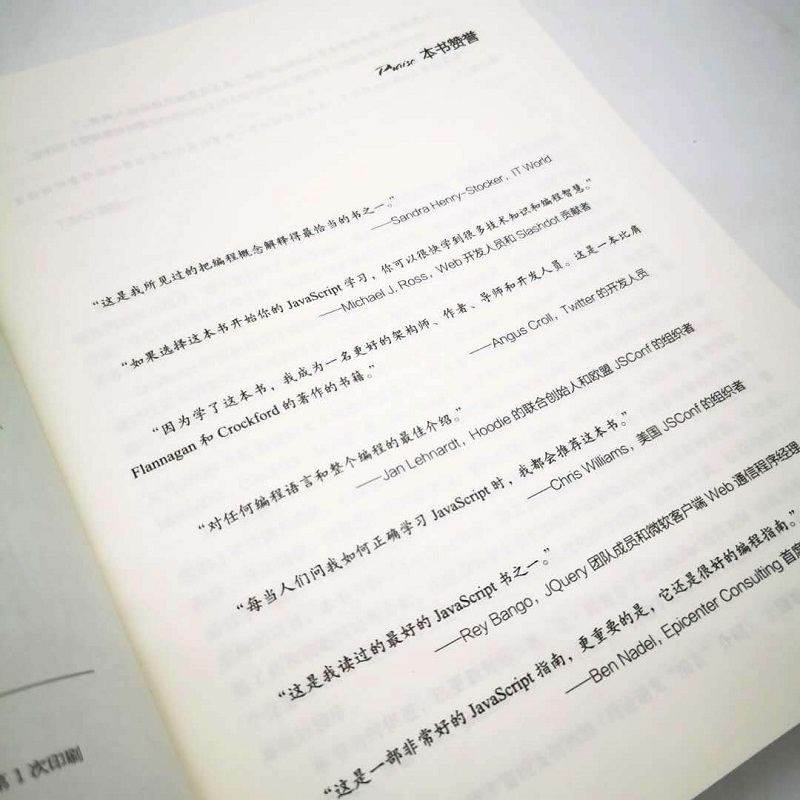 Praise 本书赞誉
“这是我所见过的把编程概念解释得最恰当的书之一。”
——Sandra Henry-Stocker，IT World
“如果选择这本书开始你的 JavaScript 学习，你可以很快学到很多技术知识和编程智慧。”
——Michael J. Ross，Web 开发人员和 Slashdot 贡献者
“因为学了这本书，我成为一名更好的架构师、作者、导师和开发人员。这是一本比肩
Flannagan 和 Crockford 的著作的书籍。”
——Angus Croll，Twitter 的开发人员
“对任何编程语言和整个编程的最佳介绍。”
——Jan Lehnardt，Hoodie 的联合创始人和欧盟 JSConf 的组织者
“每当人们问我如何正确学习 JavaScript 时，我都会推荐这本书。”
——Chris Williams，美国 JSConf 的组织者
“这是我读过的最好的 JavaScript 书之一。”
——Rey Bango，JQuery 团队成员和微软客户端 Web 通信程序经理
“这是一部非常好的 JavaScript 指南，更重要的是，它还是很好的编程指南。”
——Ben Nadel，Epicenter Consulting 首席
第 1 次印刷